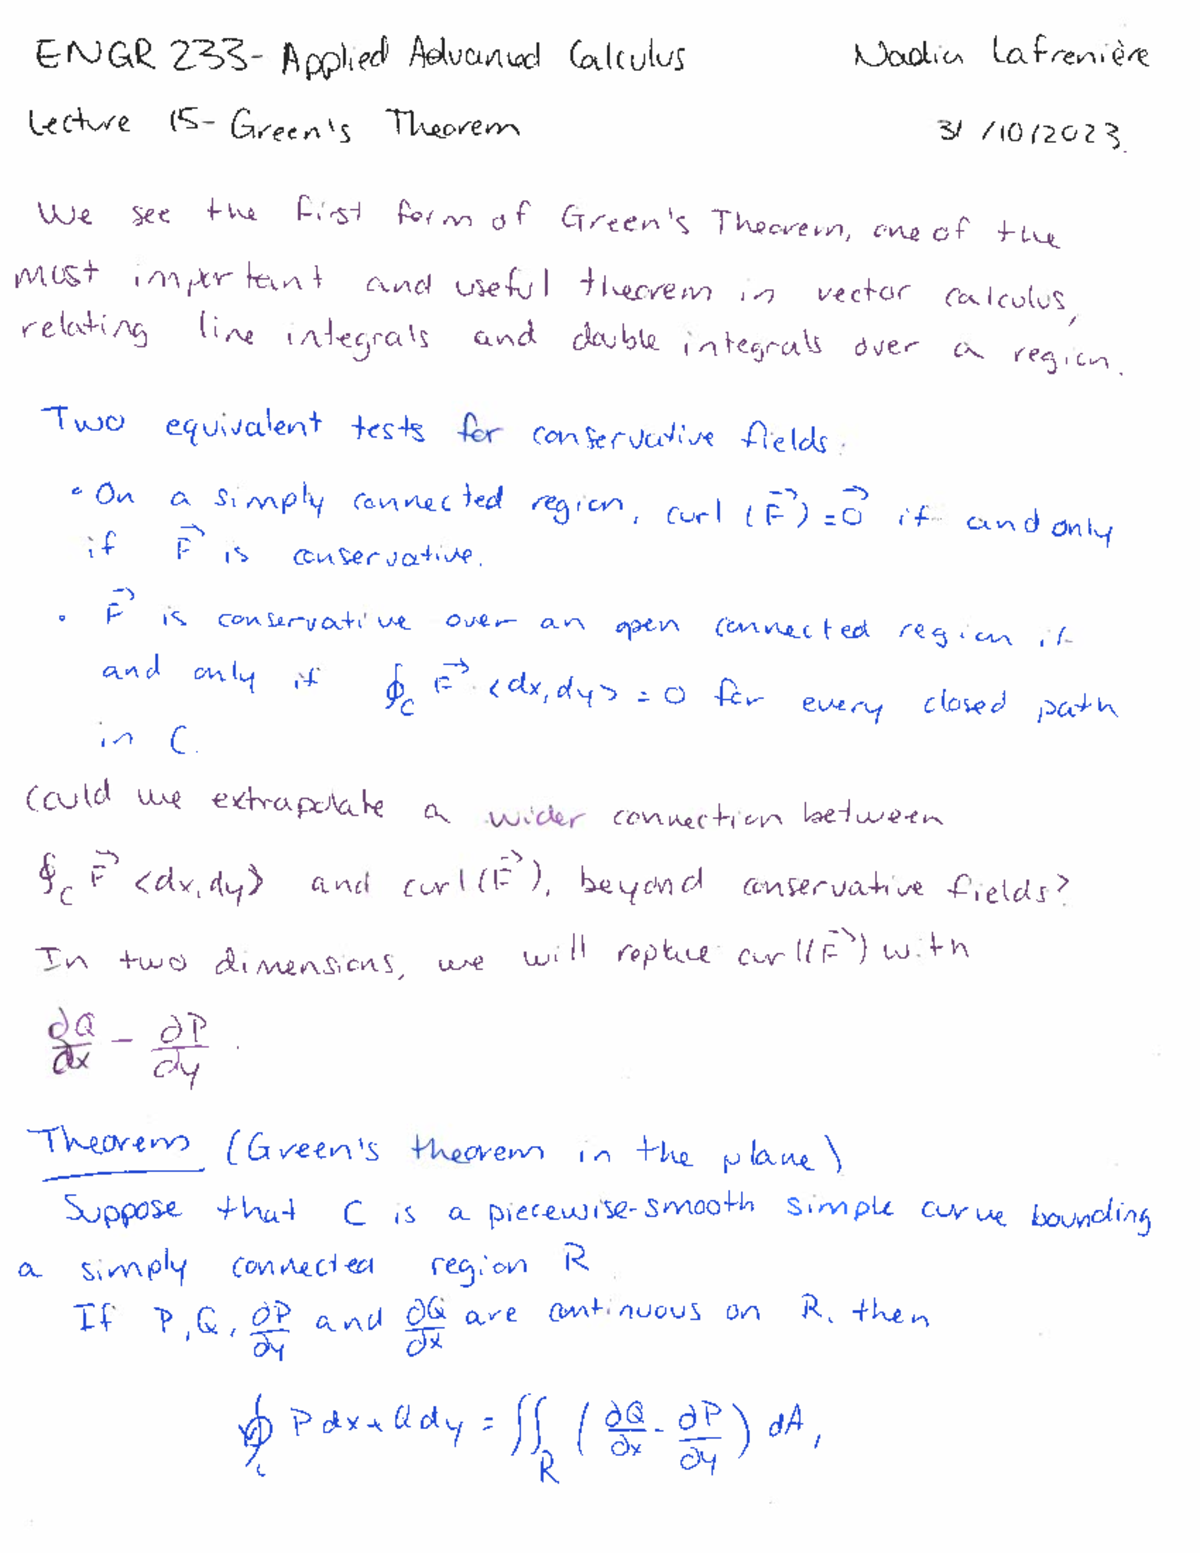 ENGR 233- Applied Advanced Calculus Nadia Lafrenière
Lecture 15- Green's Theorem 31/10/2023.
We see the first form of Green's Theorem, one of the
most important and useful theorem in vector calculus,
relating line integrals and double integrals over a region.
Two equivalent tests for conservative fields:
• On a simply connected region, curl (F⃗) = 0⃗ if and only
if F⃗ is conservative.
• F⃗ is conservative over an open connected region if
and only if ∮_C F⃗ · <dx, dy> = 0 for every closed path
in C.
Could we extrapolate a wider connection between
∮_C F⃗ <dx, dy> and curl (F⃗), beyond conservative fields?
In two dimensions, we will replace curl(F⃗) with
∂Q/∂x - ∂P/∂y.
Theorem (Green's theorem in the plane)
Suppose that C is a piecewise-smooth simple curve bounding
a simply connected region R
If P, Q, ∂P/∂y and ∂Q/∂x are continuous on R, then
∮_C P dx + Q dy = ∬_R (∂Q/∂x - ∂P/∂y) dA,